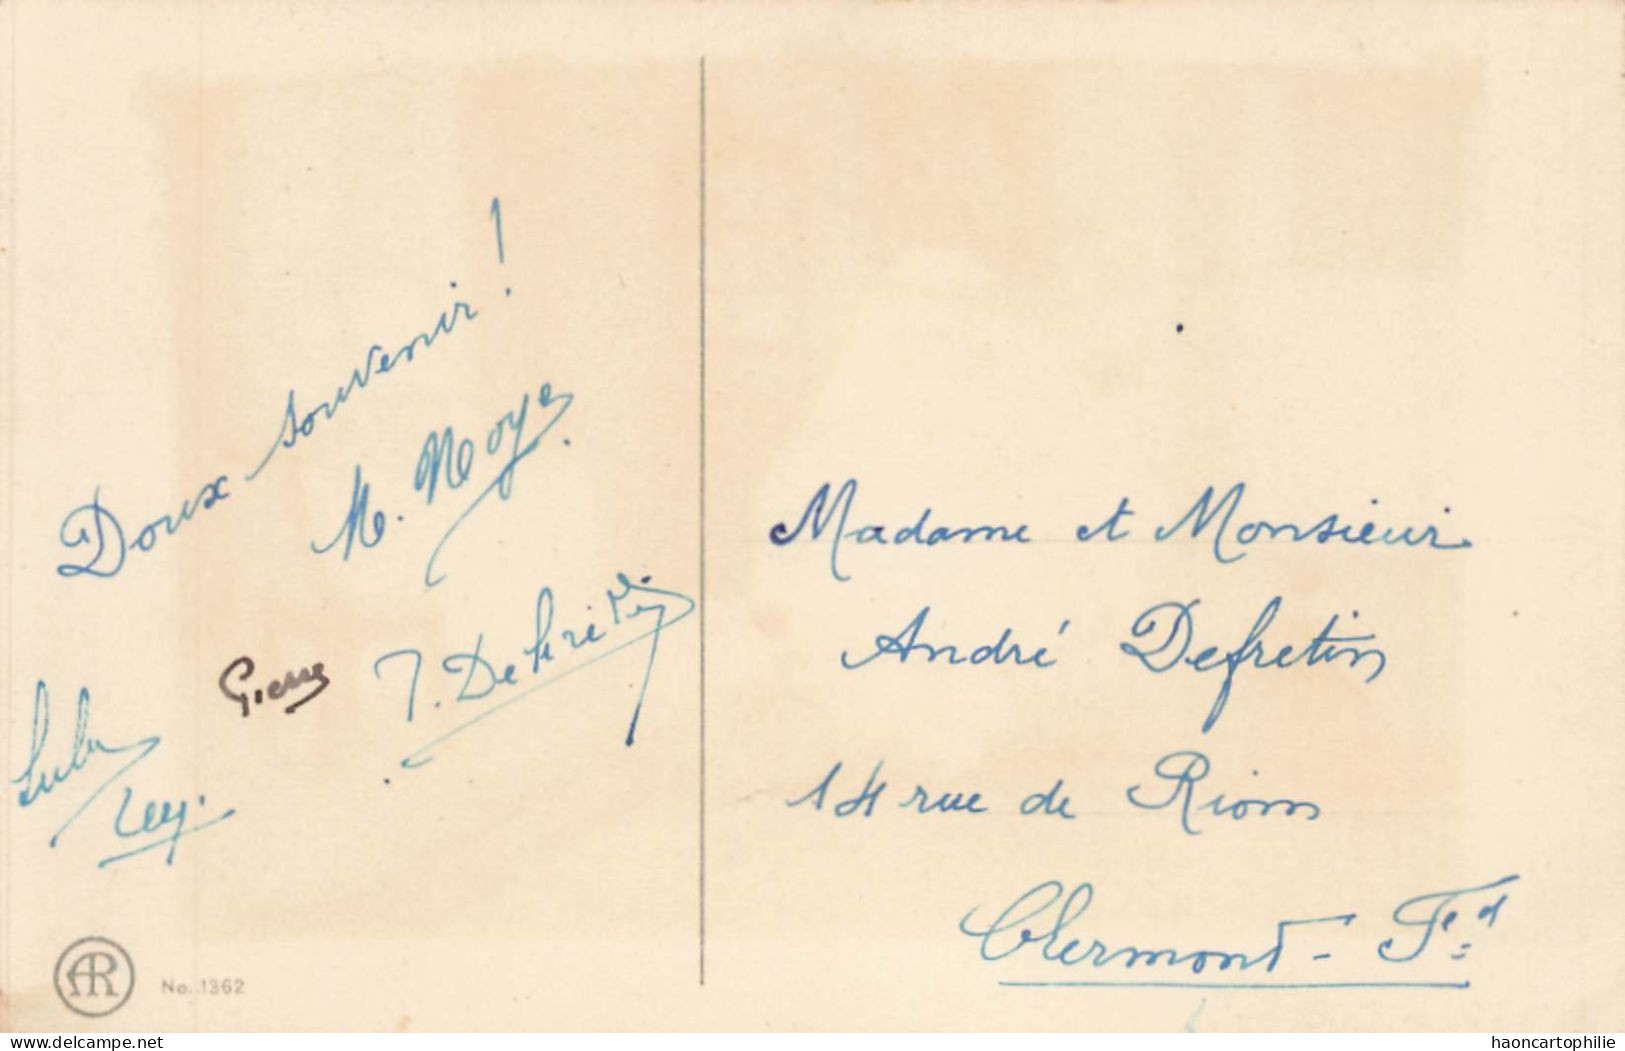 Doux souvenir !
M. Noye.
Pierre
Madame et Monsieur
André Defretin
14 rue de Riom
Clermont-Fd
AR
No. 1362
www.delcampe.net
haoncartophilie